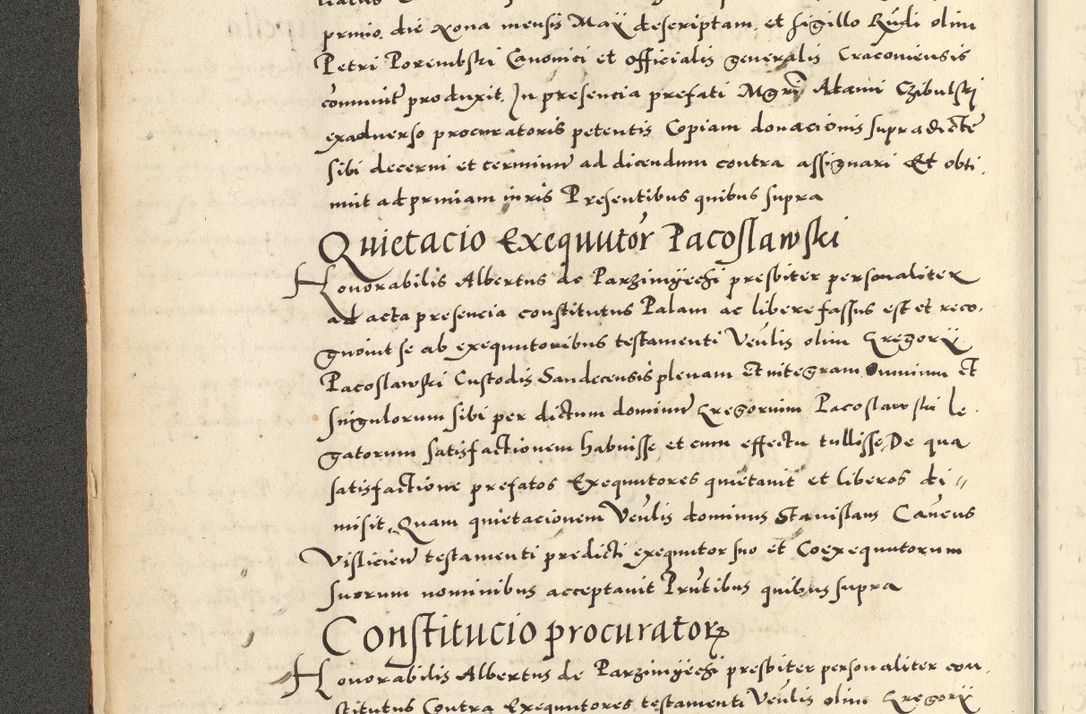 primo, die xona mensis Maÿ descriptam, et sigillo Rñdi olim
Petri Porembski Canonici et officialis generalis Cracoviensis
communit produxit. In presencia prefati Mgri Adami Czibulski
exadverso procuratoris petentis Copiam donacionis supradictę
sibi decerni et terminum ad dicendum contra assignari Et obti,
nuit ad primam iuris Presentibus quibus supra
Quietacio Exequutor Pacoslawski
Honorabilis Albertus de presbiter personaliter
ad acta presencia constitutus Palam ac libere fassus est et reco,
gnovit se ab exequutoribus testamenti Venlis olim Gregorÿ
Pacoslawski Custodis Sandecensis plenam Et integram omnium et
singulorum sibi per dictum dominum Gregorium Pacoslawski le,
gatorum satisfactionem habuisse et cum effectu tullisse De qua
satisfactione prefatos Exequutores quietavit et liberos di//
misit, Quam quietacionem Venlis dominus Stanislaus Caneus
Vislicien testamenti predicti exequutor suo et Coexequutorum
suorum nominibus acceptavit Prñtibus quibus supra
Constitucio procurator
Honorabilis Albertus de presbiter personaliter con,
stitutus Contra Exequutores testamenti Venlis olim Gregorÿ